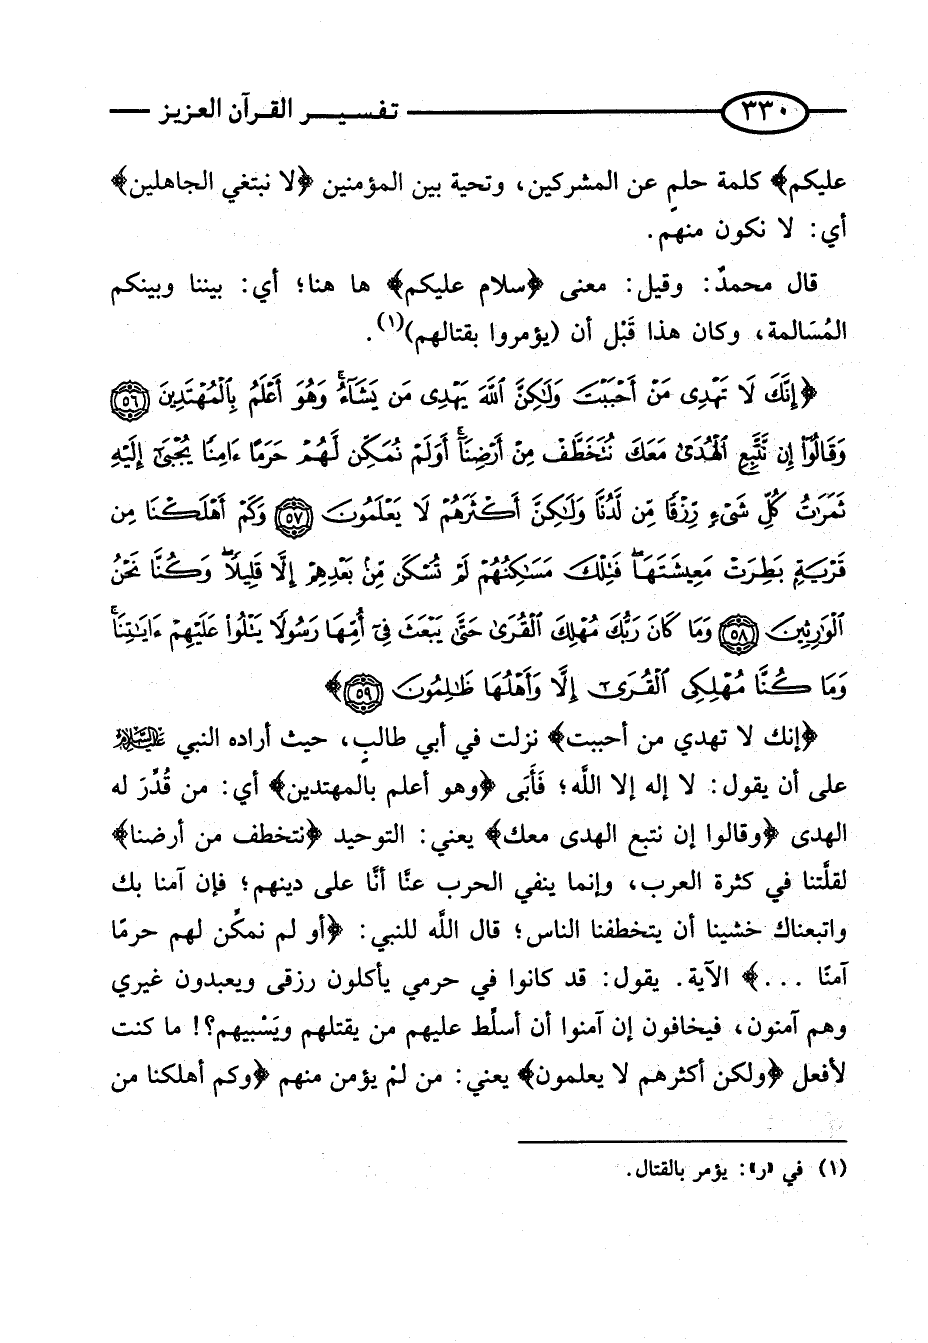 ٣٣٠ تفسير القرآن العزيز
عليكم﴾ كلمة حلمٍ عن المشركين، وتحية بين المؤمنين ﴿لا نبتغي الجاهلين﴾
أي: لا نكون منهم.
قال محمدٌ: وقيل: معنى ﴿سلام عليكم﴾ ها هنا؛ أي: بيننا وبينكم
المُسَالمة، وكان هذا قَبْل أن (يؤمروا بقتالهم)(١).
﴿إِنَّكَ لَا تَهْدِى مَنْ أَحْبَبْتَ وَلَٰكِنَّ ٱللَّهَ يَهْدِى مَن يَشَآءُ ۚ وَهُوَ أَعْلَمُ بِٱلْمُهْتَدِينَ ٥٦
وَقَالُوٓا۟ إِن نَّتَّبِعِ ٱلْهُدَىٰ مَعَكَ نُتَخَطَّفْ مِنْ أَرْضِنَآ ۚ أَوَلَمْ نُمَكِّن لَّهُمْ حَرَمًا ءَامِنًا يُجْبَىٰٓ إِلَيْهِ
ثَمَرَٰتُ كُلِّ شَىْءٍ رِّزْقًا مِّن لَّدُنَّا وَلَٰكِنَّ أَكْثَرَهُمْ لَا يَعْلَمُونَ ٥٧ وَكَمْ أَهْلَكْنَا مِن
قَرْيَةٍۭ بَطِرَتْ مَعِيشَتَهَا ۖ فَتِلْكَ مَسَٰكِنُهُمْ لَمْ تُسْكَن مِّنۢ بَعْدِهِمْ إِلَّا قَلِيلًا ۖ وَكُنَّا نَحْنُ
ٱلْوَٰرِثِينَ ٥٨ وَمَا كَانَ رَبُّكَ مُهْلِكَ ٱلْقُرَىٰ حَتَّىٰ يَبْعَثَ فِىٓ أُمِّهَا رَسُولًا يَتْلُوا۟ عَلَيْهِمْ ءَايَٰتِنَا ۚ
وَمَا كُنَّا مُهْلِكِى ٱلْقُرَىٰٓ إِلَّا وَأَهْلُهَا ظَٰلِمُونَ ٥٩﴾
﴿إنك لا تهدي من أحببت﴾ نزلت في أبي طالبٍ، حيث أراده النبي عليه السلام
على أن يقول: لا إله إلا اللَّه؛ فَأَبَى ﴿وهو أعلم بالمهتدين﴾ أي: من قُدِّرَ له
الهدى ﴿وقالوا إن نتبع الهدى معك﴾ يعني: التوحيد ﴿نتخطف من أرضنا﴾
لقلَّتنا في كثرة العرب، وإنما ينفي الحرب عنَّا أنَّا على دينهم؛ فإن آمنا بك
واتبعناك خشينا أن يتخطفنا الناس؛ قال اللَّه للنبي: ﴿أو لم نمكِّن لهم حرمًا
آمنًا ...﴾ الآية. يقول: قد كانوا في حرمي يأكلون رزقى ويعبدون غيري
وهم آمنون، فيخافون إن آمنوا أن أسلِّط عليهم من يقتلهم ويَسْبيهم؟! ما كنت
لأفعل ﴿ولكن أكثرهم لا يعلمون﴾ يعني: من لمْ يؤمن منهم ﴿وكم أهلكنا من
(١) في «ر»: يؤمر بالقتال.